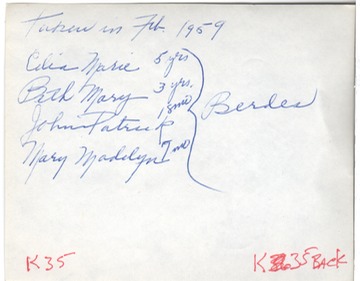 Taken in Feb. 1959
Celia Marie 5 yrs
Beth Mary 3 yrs.
John Patrick 18mo
Mary Madelyn 7mo
Berdes
K35
K 35 BACK